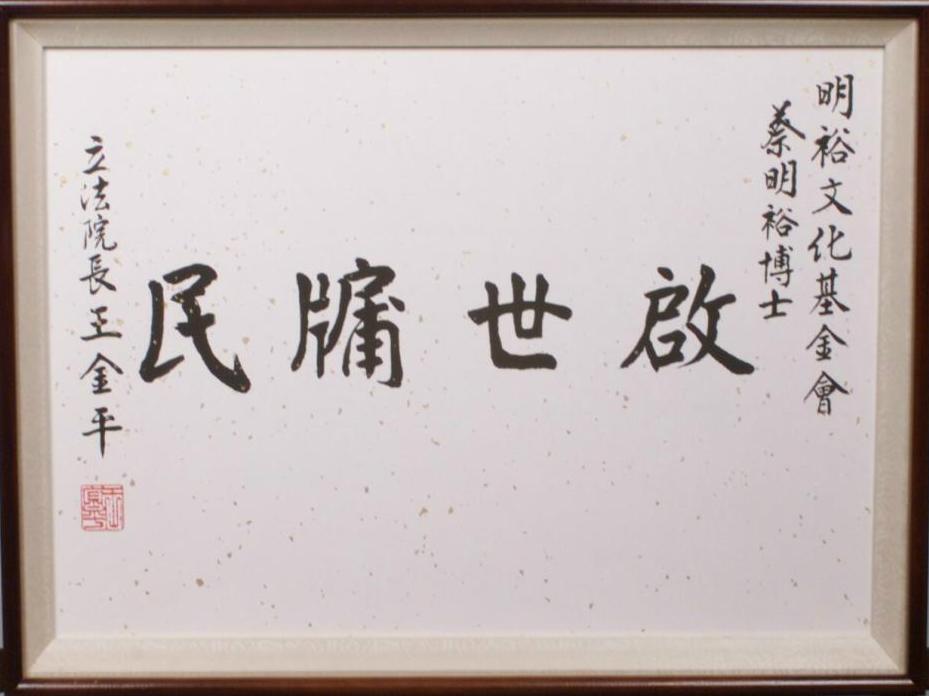 明裕文化基金會
蔡明裕博士
啟世牖民
立法院長王金平